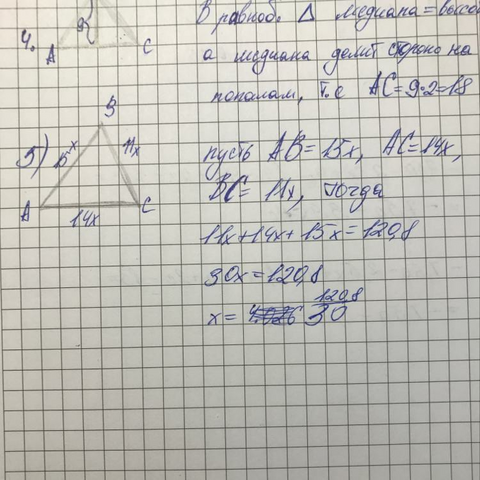 В равноб. Δ медиана = высо
4.
А
С
а медиана делит сторона на
пополам, т.е АС = 9·2 = 18
5)
В
15x
11x
А
С
14x
пусть АВ = 15x, АС = 14x,
ВС = 11x, тогда
11x + 14x + 15x = 120,8
30x = 120,8
x = 120,8
30